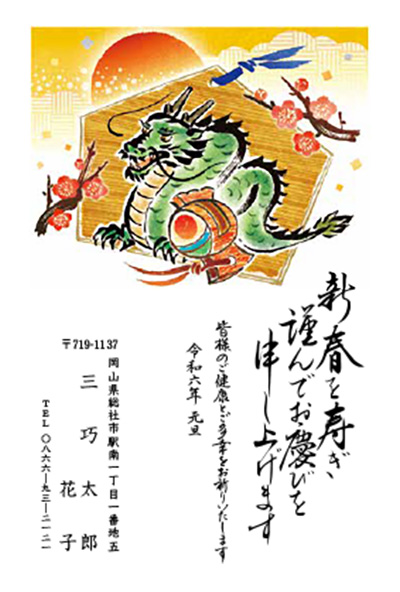 新春を寿ぎ、
謹んでお慶びを
申し上げます
皆様のご健康とご多幸をお祈りいたします
令和六年 元旦
〒719-1137
岡山県総社市駅南一丁目一番地五
三巧太郎
花子
TEL 〇八六六―九三―二一二一